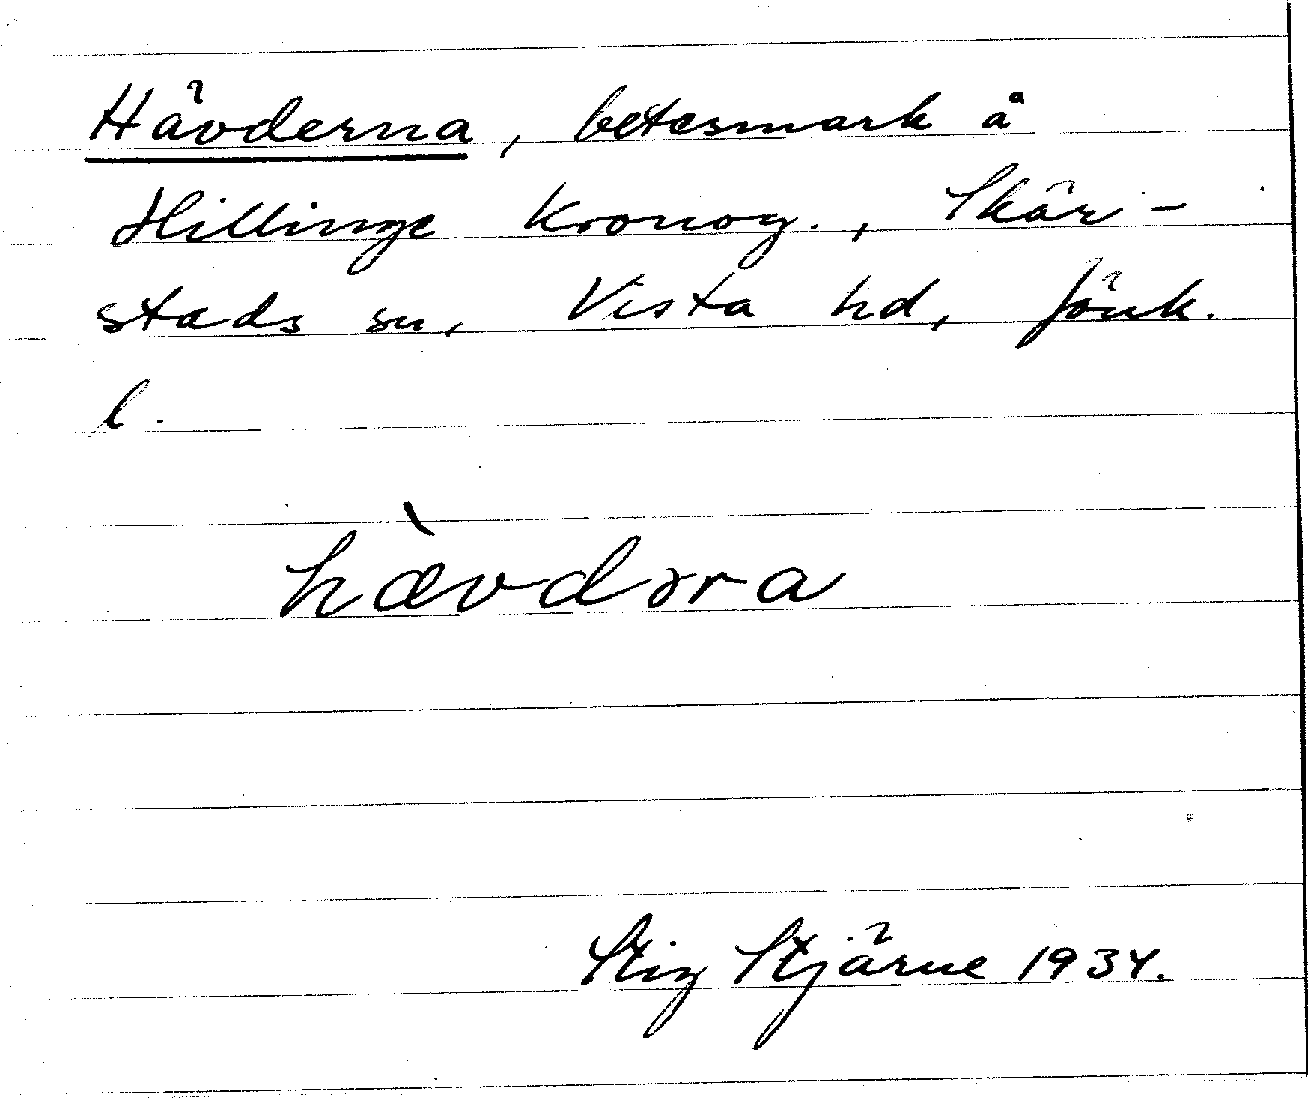 Hävderna, betesmark å
Hillinge Kronog., Skär-
stads sn, Vista hd, Jönk.
l.
hævdəra
Stig Stjärne 1934.